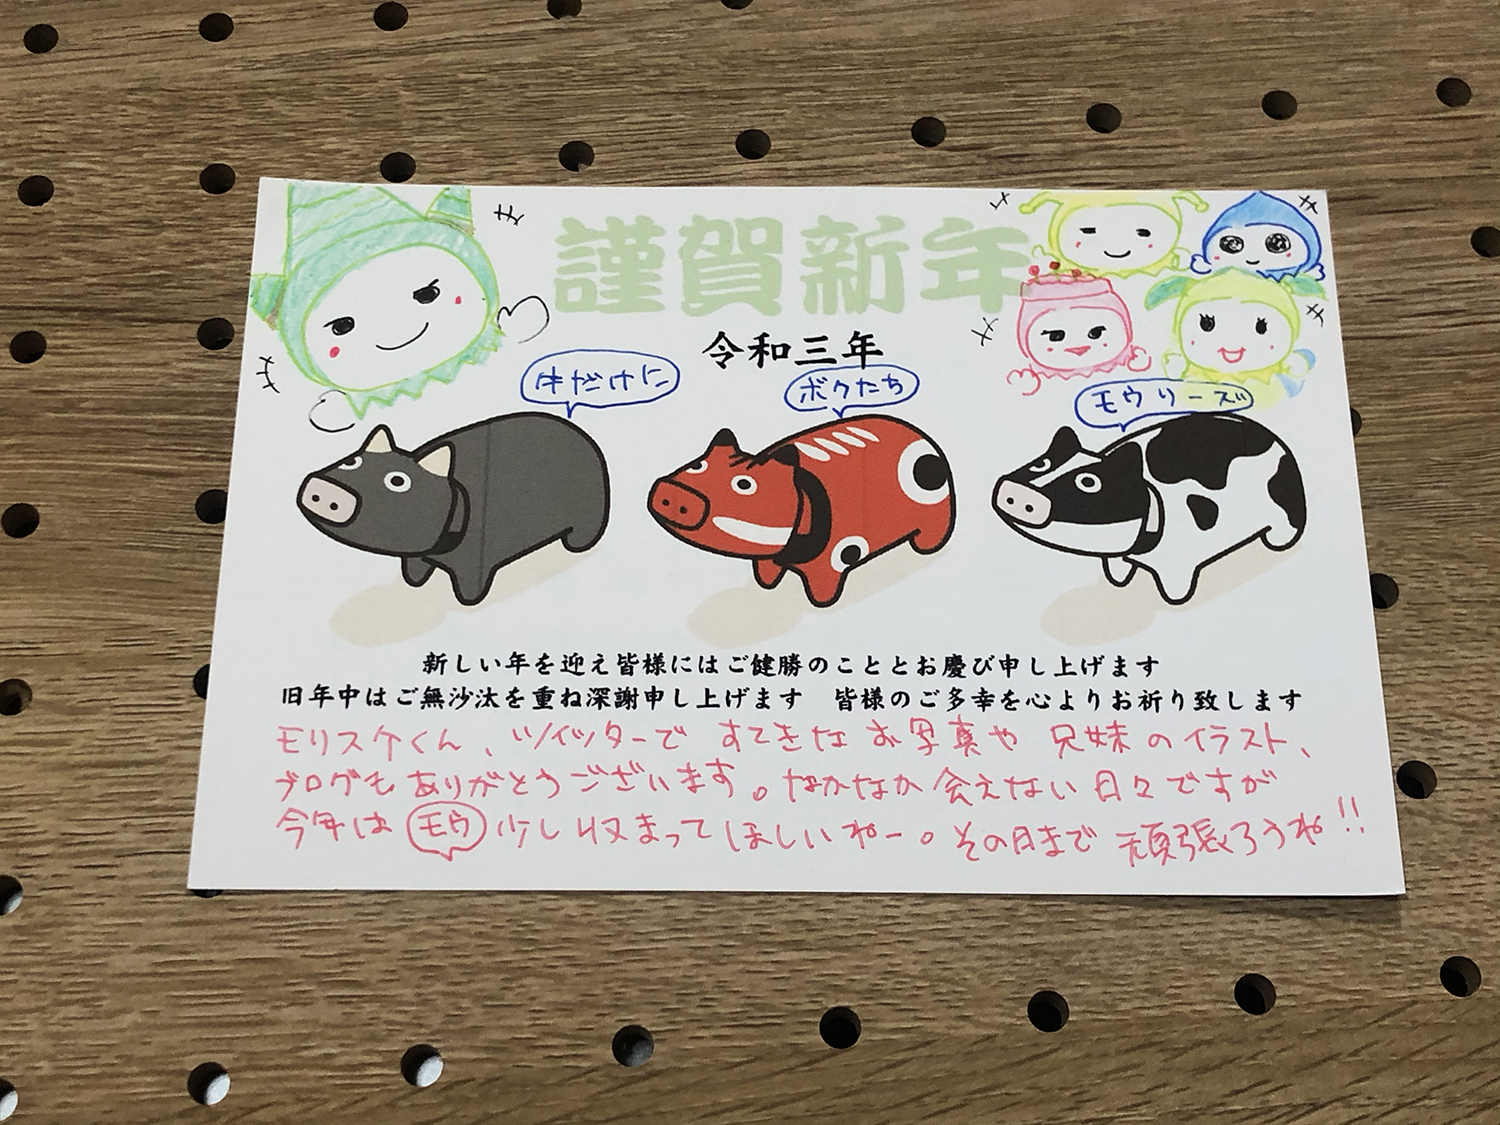 謹賀新年
令和三年
牛だけに
ボクたち
モウリーズ
新しい年を迎え皆様にはご健勝のこととお慶び申し上げます
旧年中はご無沙汰を重ね深謝申し上げます　皆様のご多幸を心よりお祈り致します
モリスケくん、ツイッターで すてきな お写真や 兄妹のイラスト、
ブログもありがとうございます。なかなか会えない日々ですが
今年は モウ 少し収まってほしいねー。その日まで頑張ろうね!!